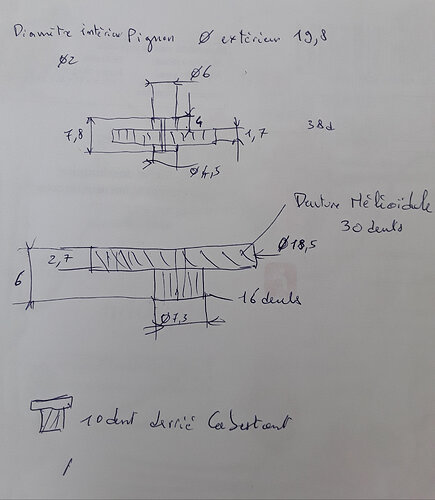 Diamètre intérieur Pignon Ø extérieur 19,8
Ø2
Ø6
4
7,8
1,7
38d
Ø4,5
Denture Hélicoïdale
30 dents
Ø18,5
2,7
6
16 dents
Ø7,3
10 dent derrié Cabestant